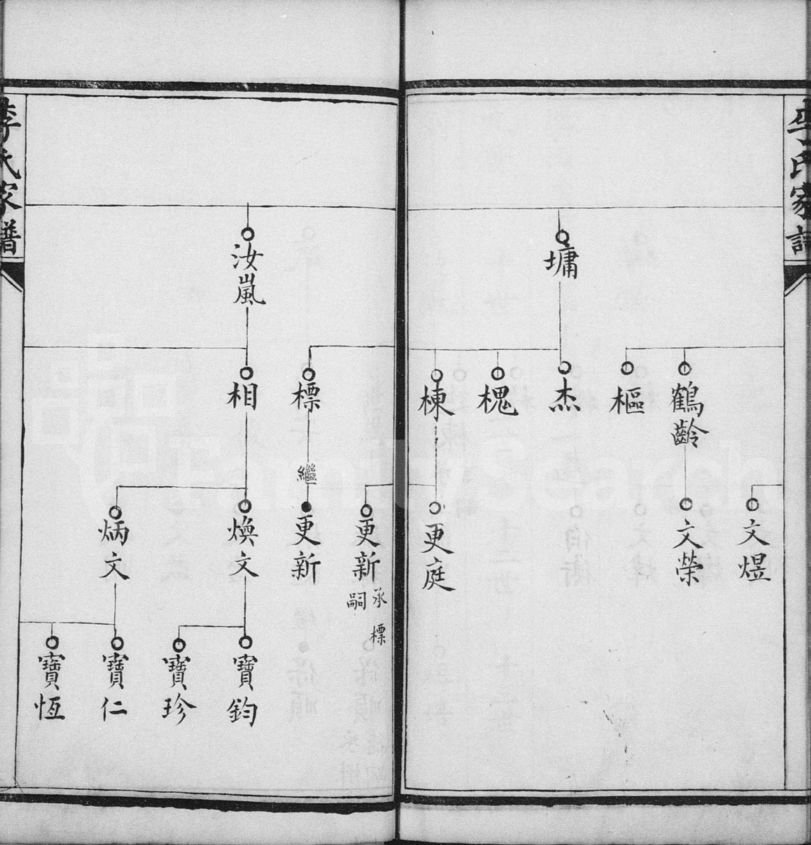 李氏家譜
墉
鶴齡
樞
杰
槐
棟
文煜
文榮
更庭
汝嵐
標
相
繼
更新
承標
嗣
更新
煥文
炳文
寶鈞
寶珍
寶仁
寶恆
李氏家譜